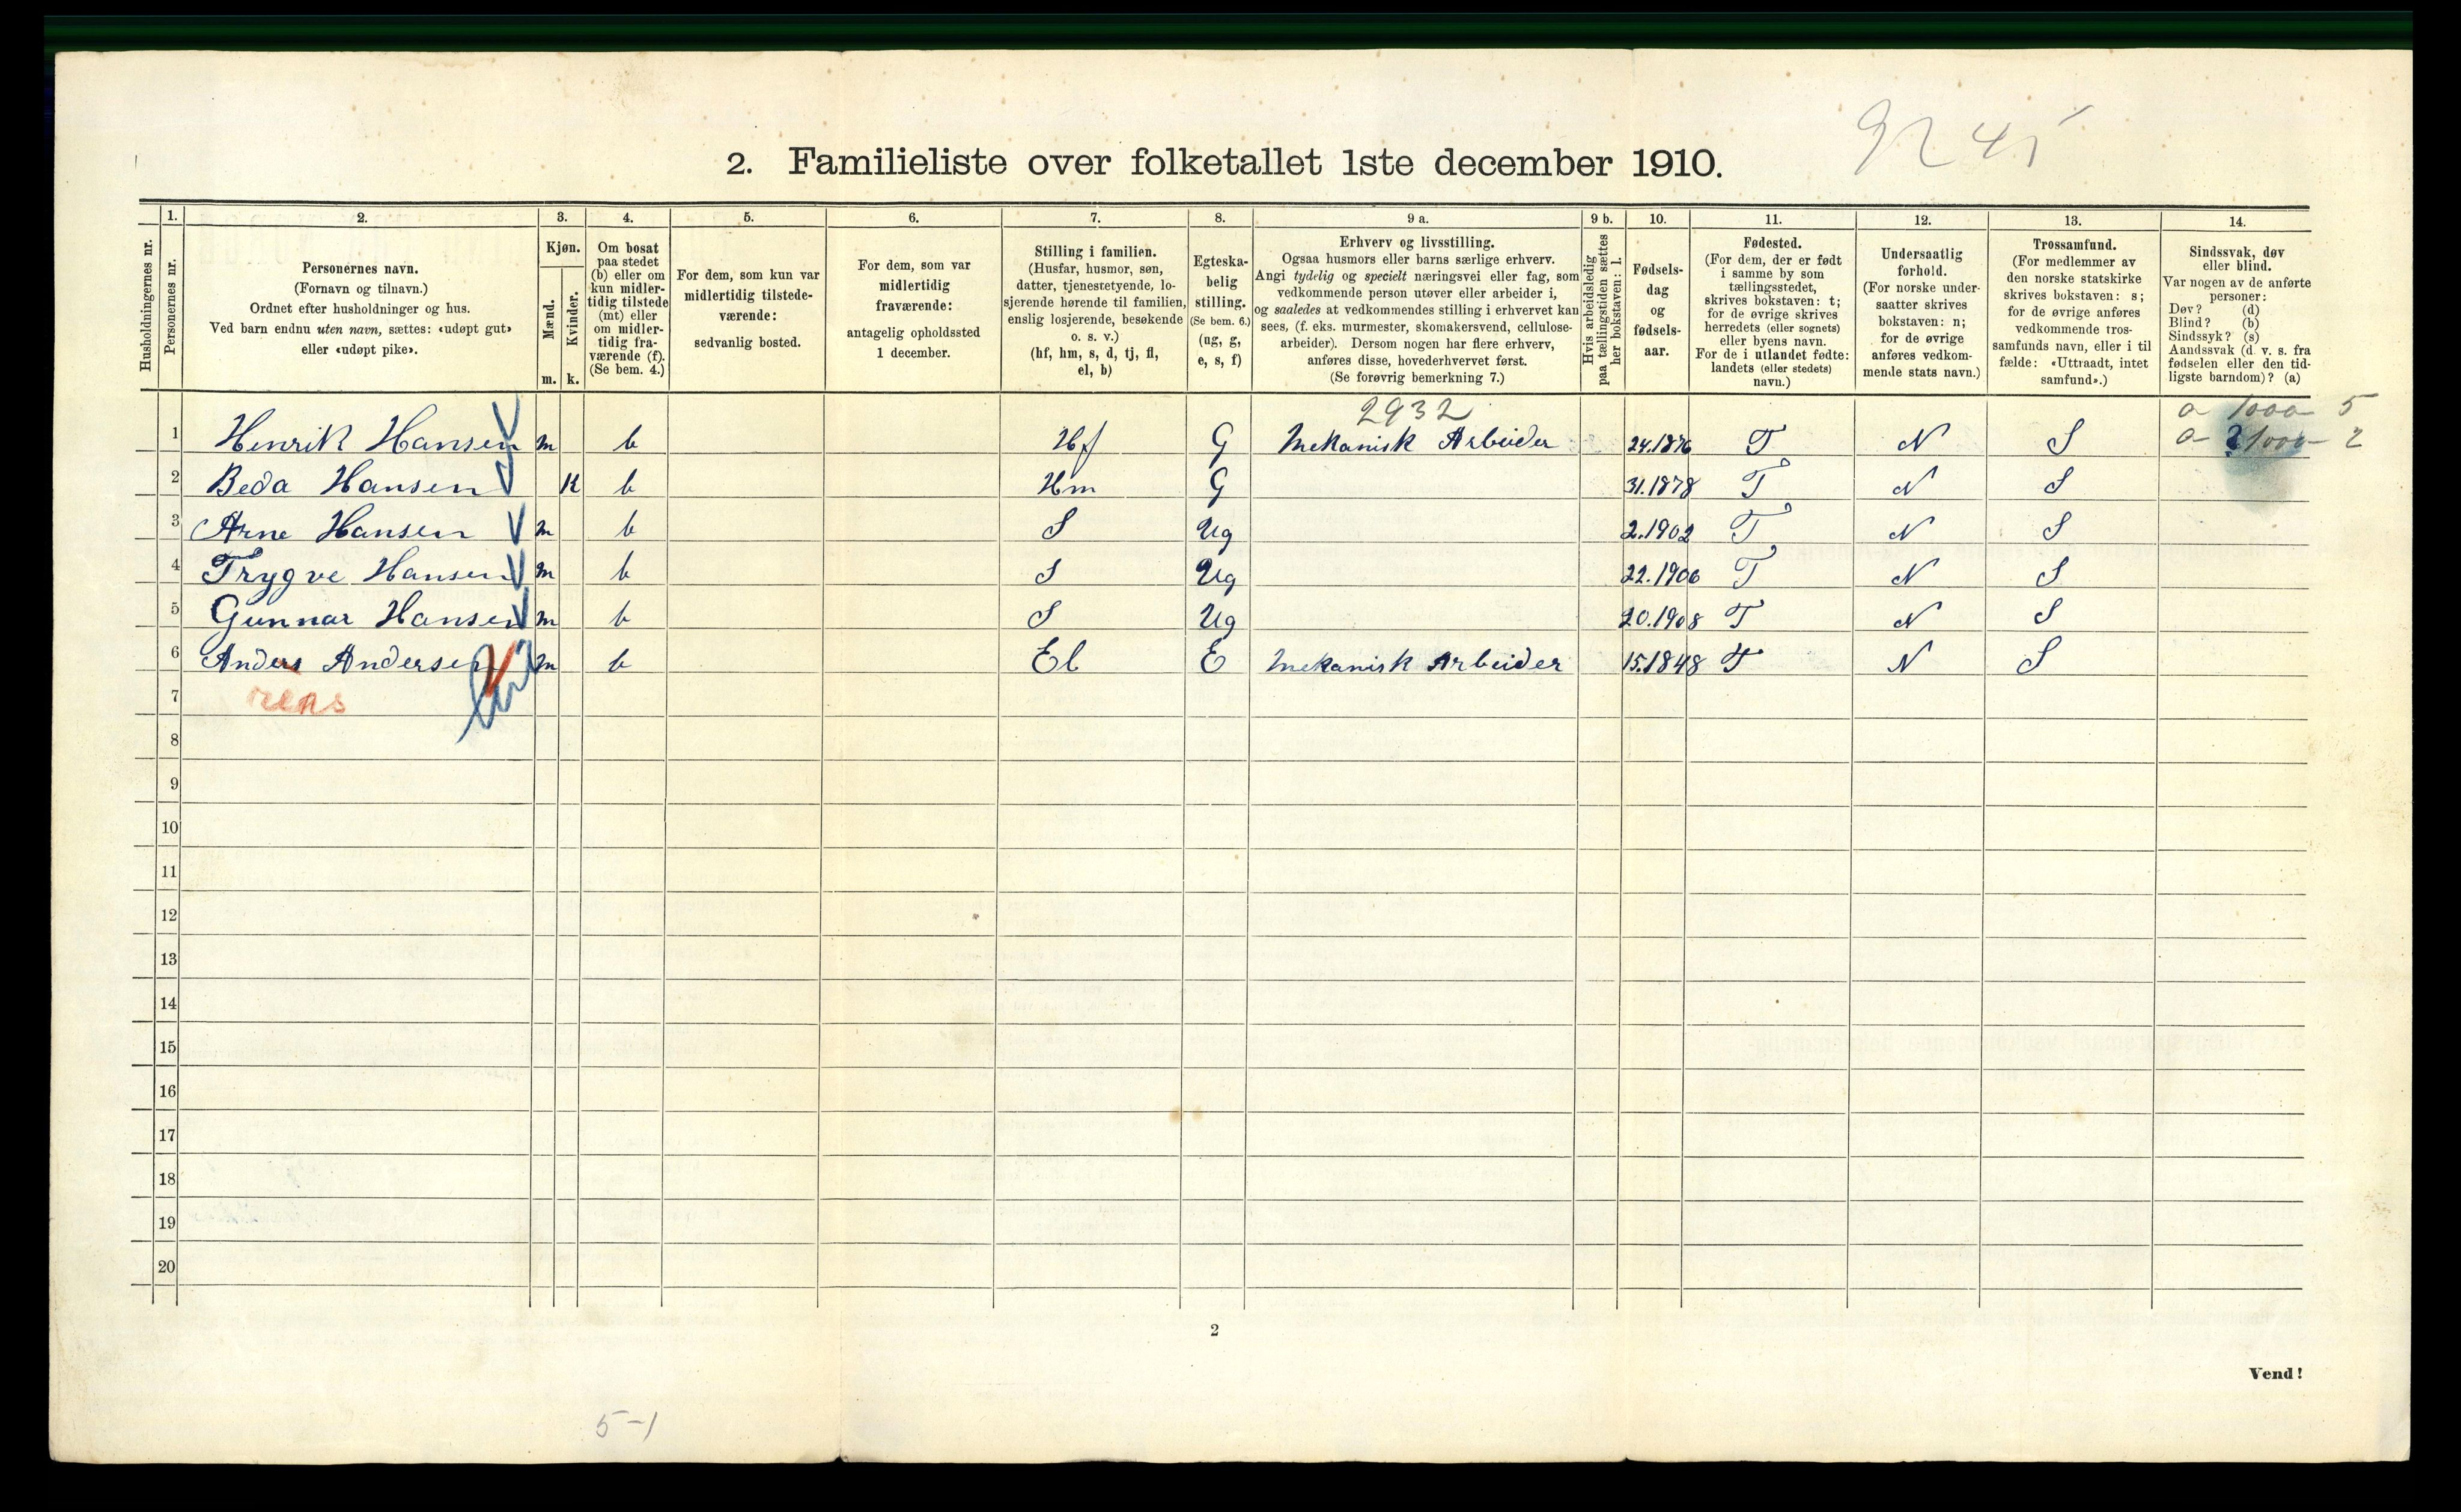 9245
2. Familieliste over folketallet 1ste december 1910.
Husholdningernes nr.
1.
Personernes nr.
2.
Personernes navn.
(Fornavn og tilnavn.)
Ordnet efter husholdninger og hus.
Ved barn endnu uten navn, sættes: «udøpt gut»
eller «udøpt pike».
3.
Kjøn.
Mænd.
Kvinder.
m. k.
4.
Om bosat
paa stedet
(b) eller om
kun midler-
tidig tilstede
(mt) eller
om midler-
tidig fra-
værende (f).
(Se bem. 4.)
5.
For dem, som kun var
midlertidig tilstede-
værende:
sedvanlig bosted.
6.
For dem, som var
midlertidig
fraværende:
antagelig opholdssted
1 december.
7.
Stilling i familien.
(Husfar, husmor, søn,
datter, tjenestetyende, lo-
sjerende hørende til familien,
enslig losjerende, besøkende
o. s. v.)
(hf, hm, s, d, tj, fl,
el, b)
8.
Egteska-
belig
stilling.
(Se bem. 6.)
(ug, g,
e, s, f)
9 a.
Erhverv og livsstilling.
Ogsaa husmors eller barns særlige erhverv.
Angi tydelig og specielt næringsvei eller fag, som
vedkommende person utøver eller arbeider i,
og saaledes at vedkommendes stilling i erhvervet kan
sees, (f. eks. murmester, skomakersvend, cellulose-
arbeider). Dersom nogen har flere erhverv,
anføres disse, hovederhvervet først.
(Se forøvrig bemerkning 7.)
9 b.
Hvis arbeidsledig
paa tællingstiden sættes
her bokstaven: l.
10.
Fødsels-
dag
og
fødsels-
aar.
11.
Fødested.
(For dem, der er født
i samme by som
tællingsstedet,
skrives bokstaven: t;
for de øvrige skrives
herredets (eller sognets)
eller byens navn.
For de i utlandet fødte:
landets (eller stedets)
navn.)
12.
Undersaatlig
forhold.
(For norske under-
saatter skrives
bokstaven: n;
for de øvrige
anføres vedkom-
mende stats navn.)
13.
Trossamfund.
(For medlemmer av
den norske statskirke
skrives bokstaven: s;
for de øvrige anføres
vedkommende tros-
samfunds navn, eller i til
fælde: «Uttraadt, intet
samfund».)
14.
Sindssvak, døv
eller blind.
Var nogen av de anførte
personer:
Døv? (d)
Blind? (b)
Sindssyk? (s)
Aandssvak (d. v. s. fra
fødselen eller den tid-
ligste barndom)? (a)
2932 a 1000 - 5
1 Henrik Hansen m b Hf G Mekanisk Arbeider 24.1876 T N S
2 Beda Hansen K b Hm G 31.1878 T N S
3 Arne Hansen m b S Ug 2.1902 T N S
4 Trygve Hansen m b S Ug 22.1906 T N S
5 Gunnar Hansen m b S Ug 20.1908 T N S
6 Anders Andersen m b El E Mekanisk Arbeider 15.1848 T N S
7
8
9
10
11
12
13
14
15
16
17
18
19
20
2
Vend!
5-1